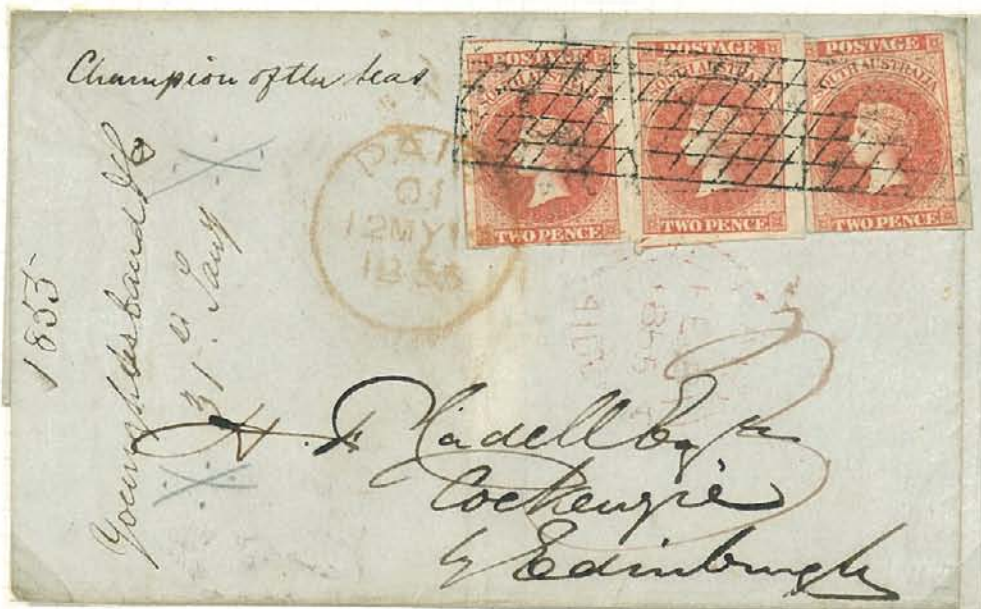 Champion of the Seas
POSTAGE
SOUTH AUSTRALIA
TWO PENCE
POSTAGE
SOUTH AUSTRALIA
TWO PENCE
POSTAGE
SOUTH AUSTRALIA
TWO PENCE
PAID
12MY12
1855
1855
31st Jany
H. F. Cadell Esqr
Cockenzie
by Edinburgh